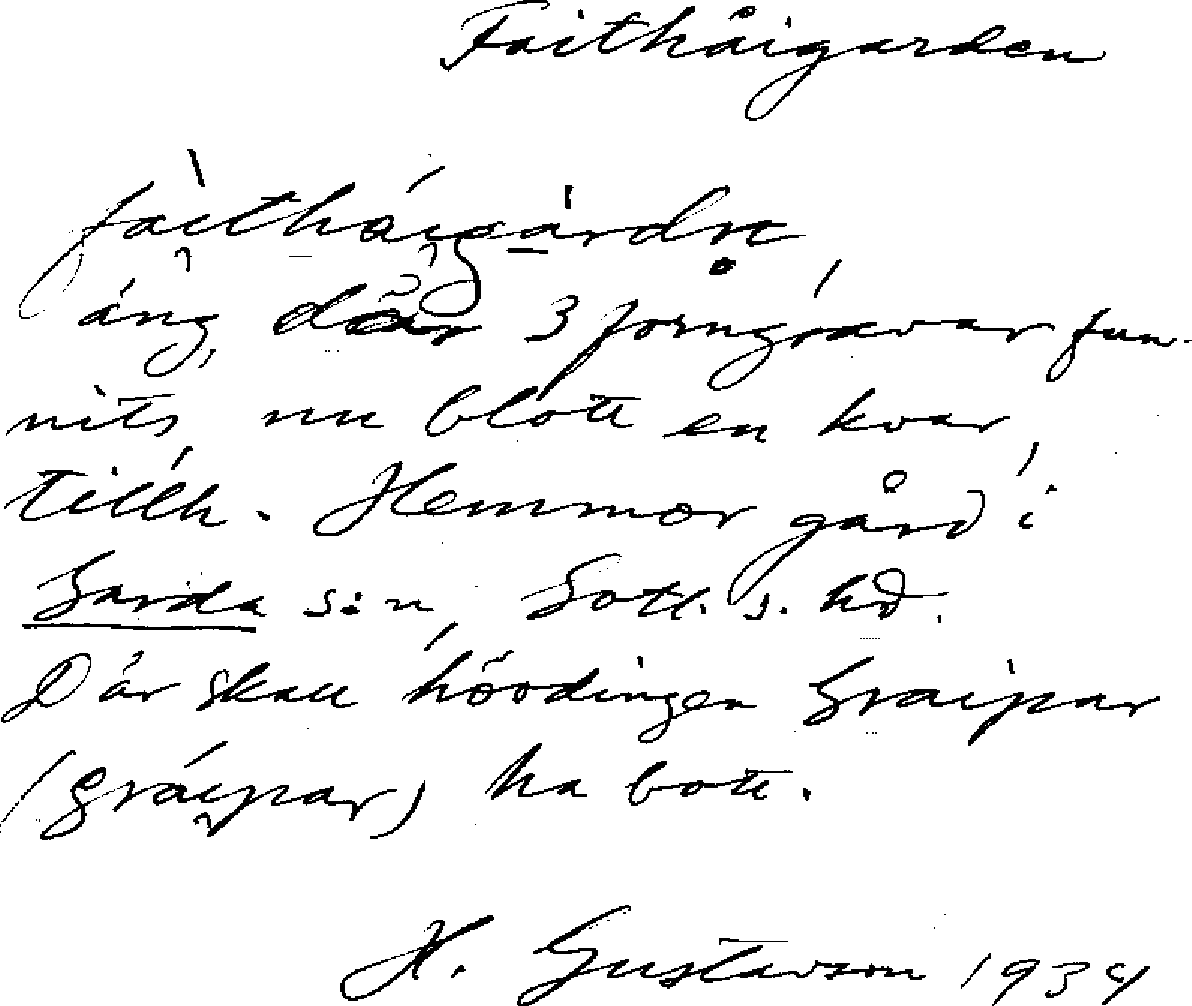 Faithåigarden
fàitháigàrdn
äng, där 3 forngravar fun-
nits, nu blott en kvar,
tillh. Hemmor gård i
Garda s:n, Gotl. s. hd.
Där skall hövdingen Graipar
(gráipar) ha bott.
H. Gustavson 1934